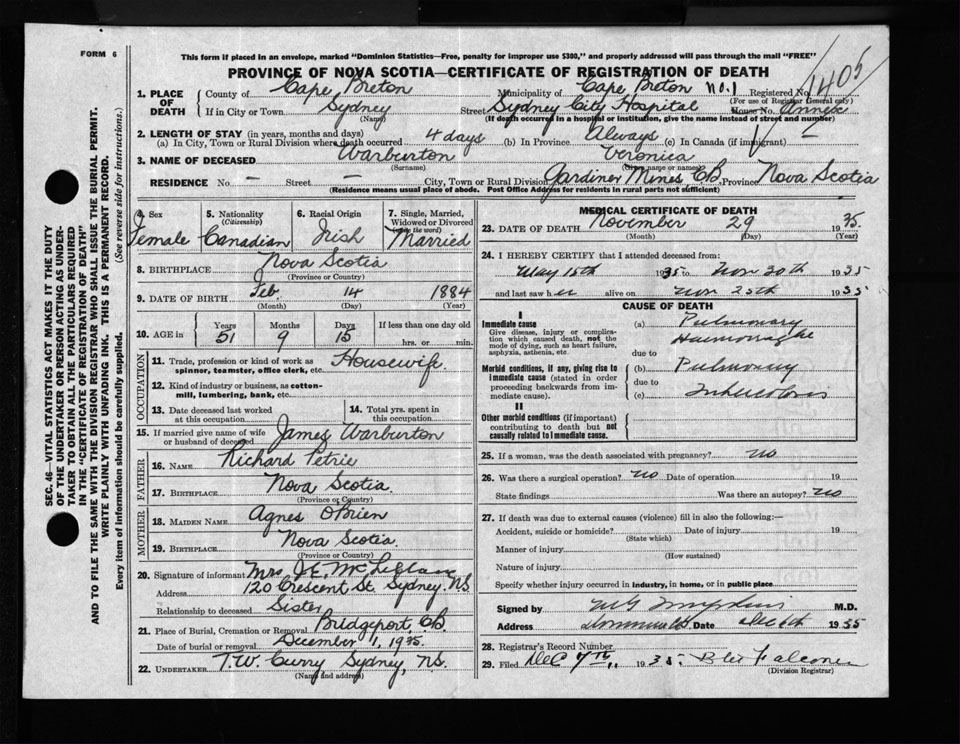 FORM 6
This form if placed in an envelope, marked "Dominion Statistics—Free, penalty for improper use $300," and properly addressed will pass through the mail "FREE"
PROVINCE OF NOVA SCOTIA—CERTIFICATE OF REGISTRATION OF DEATH
1405
1. PLACE OF DEATH
County of Cape Breton Municipality of Cape Breton No. 1 Registered No.
(For use of Registrar General only)
If in City or Town Sydney Street Sydney City Hospital House No. Annex
(Name) (If death occurred in a hospital or institution, give the name instead of street and number)
2. LENGTH OF STAY (in years, months and days)
(a) In City, Town or Rural Division where death occurred 4 days (b) In Province Always (c) In Canada (if immigrant)
3. NAME OF DECEASED Warburton Veronica
(Surname) (Given name or names)
RESIDENCE No – Street – City, Town or Rural Division Gardiner Mines CB Province Nova Scotia
(Residence means usual place of abode. Post Office Address for residents in rural parts not sufficient)
4. Sex Female
5. Nationality (Citizenship) Canadian
6. Racial Origin Irish
7. Single, Married, Widowed or Divorced (write the word) Married
8. BIRTHPLACE Nova Scotia
(Province or Country)
9. DATE OF BIRTH Feb. 14 1884
(Month) (Day) (Year)
10. AGE in Years 51 Months 9 Days 15 If less than one day old hrs. or min.
OCCUPATION
11. Trade, profession or kind of work as spinner, teamster, office clerk, etc. Housewife
12. Kind of industry or business, as cotton-mill, lumbering, bank, etc.
13. Date deceased last worked at this occupation
14. Total yrs. spent in this occupation
15. If married give name of wife or husband of deceased James Warburton
FATHER
16. NAME Richard Petrie
17. BIRTHPLACE Nova Scotia.
(Province or Country)
MOTHER
18. MAIDEN NAME Agnes O'Brien
19. BIRTHPLACE Nova Scotia.
(Province or Country)
20. Signature of informant Mrs J.E. McLellan
Address 120 Crescent St. Sydney, N.S.
Relationship to deceased Sister
21. Place of Burial, Cremation or Removal Bridgeport, C.B.
Date of burial or removal December 1, 1935.
22. UNDERTAKER T.W. Curry Sydney, N.S.
(Name and address)
MEDICAL CERTIFICATE OF DEATH
23. DATE OF DEATH November 29 1935.
(Month) (Day) (Year)
24. I HEREBY CERTIFY that I attended deceased from:
May 15th 1935 to Nov 30th 1935
and last saw her alive on Nov 25th 1935
CAUSE OF DEATH
I
Immediate cause
Give disease, injury or complication which caused death, not the mode of dying, such as heart failure, asphyxia, asthenia, etc.
(a) Pulmonary
Haemorrhage
due to
Morbid conditions, if any, giving rise to immediate cause (stated in order proceeding backwards from immediate cause).
(b) Pulmonary
due to
(c) Tuberculosis
II
Other morbid conditions (if important) contributing to death but not causally related to immediate cause.
25. If a woman, was the death associated with pregnancy? no
26. Was there a surgical operation? no Date of operation 19
State findings Was there an autopsy? no
27. If death was due to external causes (violence) fill in also the following:—
Accident, suicide or homicide? Date of injury 19
(State which)
Manner of injury
(How sustained)
Nature of injury
Specify whether injury occurred in industry, in home, or in public place
Signed by M G Tompkins M.D.
Address Dominion CB Date Dec 6th 1935
28. Registrar's Record Number
29. Filed Dec 7th, 1935. Falconer
(Division Registrar)
SEC. 46—VITAL STATISTICS ACT MAKES IT THE DUTY
OF THE UNDERTAKER OR PERSON ACTING AS UNDER-
TAKER TO OBTAIN ALL THE PARTICULARS REQUIRED
IN THE "CERTIFICATE OF REGISTRATION OF DEATH"
AND TO FILE THE SAME WITH THE DIVISION REGISTRAR WHO SHALL ISSUE THE BURIAL PERMIT.
WRITE PLAINLY WITH UNFADING INK. THIS IS A PERMANENT RECORD.
Every item of information should be carefully supplied. (See reverse side for instructions.)